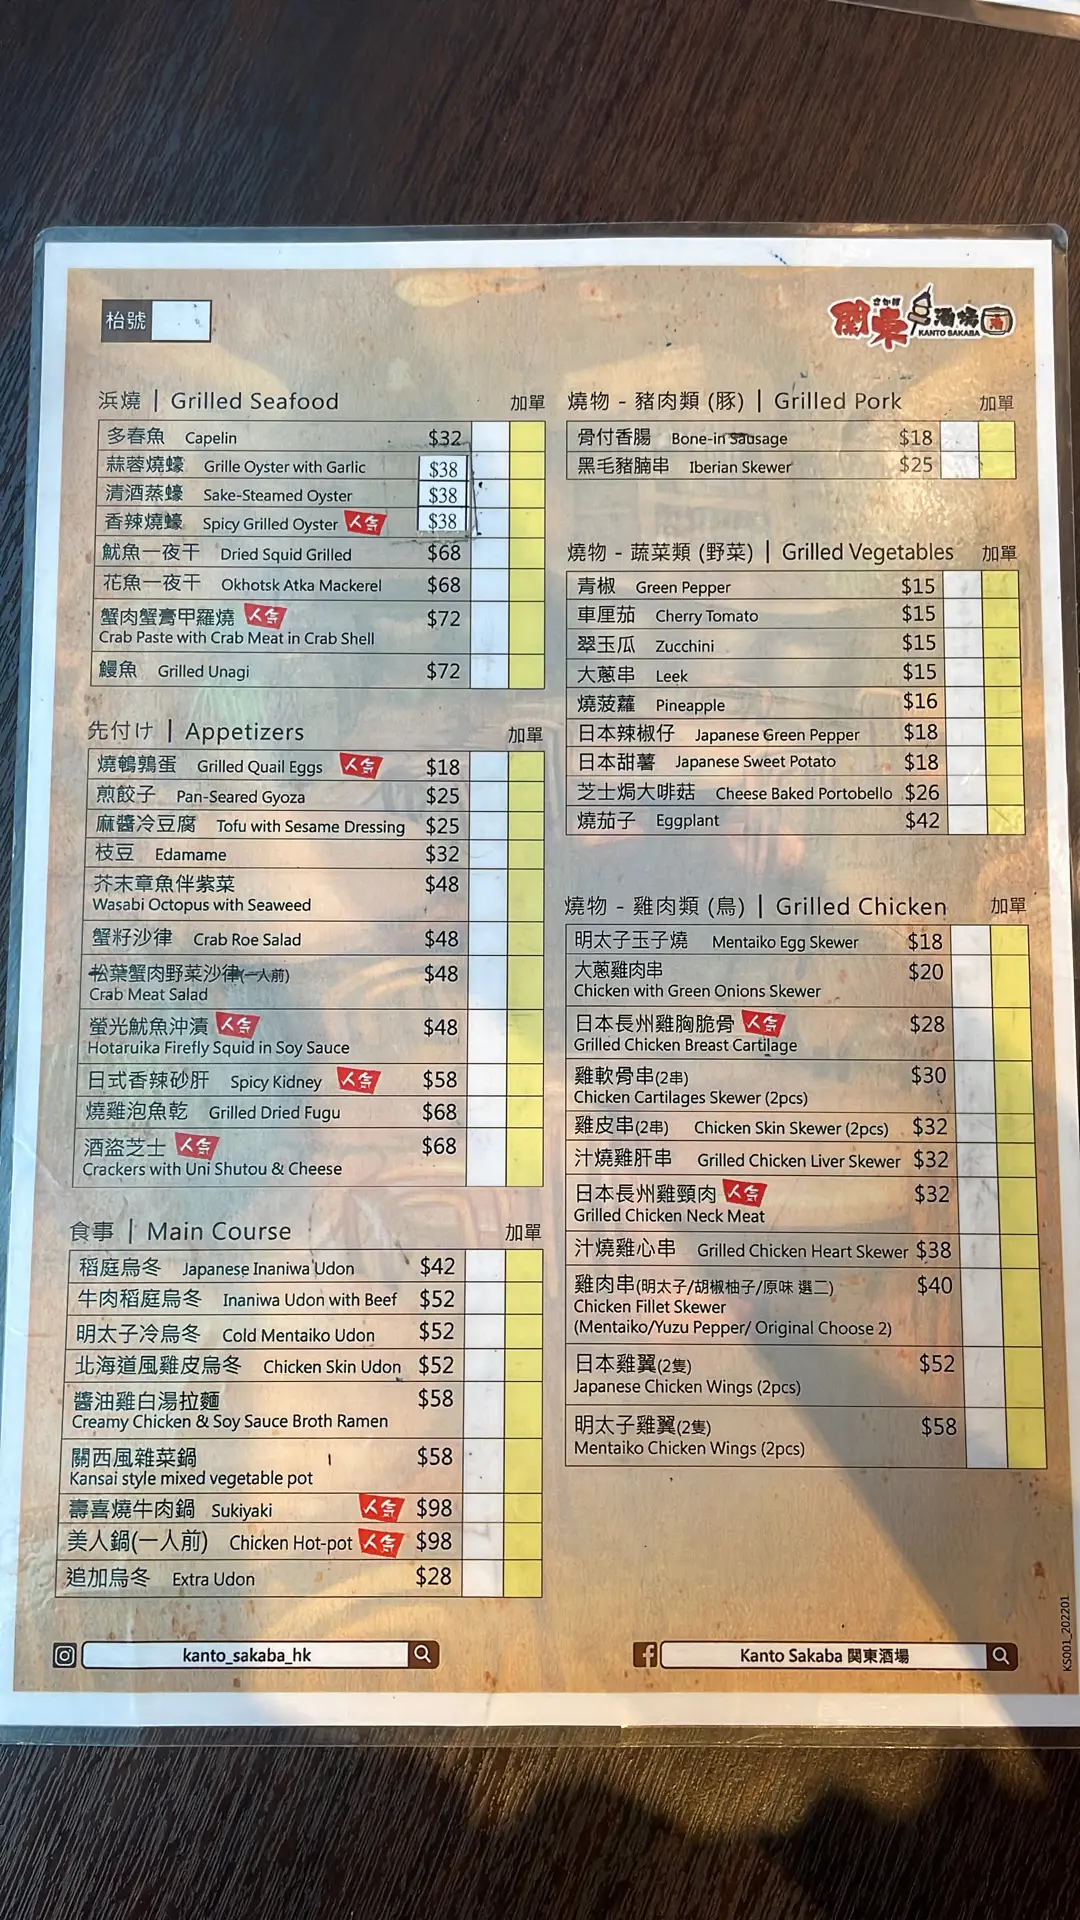 枱號
さかば
関東酒場
KANTO SAKABA
浜燒 | Grilled Seafood 加單
多春魚 Capelin $32
蒜蓉燒蠔 Grille Oyster with Garlic $38
清酒蒸蠔 Sake-Steamed Oyster $38
香辣燒蠔 Spicy Grilled Oyster 人気 $38
魷魚一夜干 Dried Squid Grilled $68
花魚一夜干 Okhotsk Atka Mackerel $68
蟹肉蟹膏甲羅燒 人気 $72
Crab Paste with Crab Meat in Crab Shell
鰻魚 Grilled Unagi $72
先付け | Appetizers 加單
燒鵪鶉蛋 Grilled Quail Eggs 人気 $18
煎餃子 Pan-Seared Gyoza $25
麻醬冷豆腐 Tofu with Sesame Dressing $25
枝豆 Edamame $32
芥末章魚伴紫菜 $48
Wasabi Octopus with Seaweed
蟹籽沙律 Crab Roe Salad $48
松葉蟹肉野菜沙律(一人前) $48
Crab Meat Salad
螢光魷魚沖漬 人気 $48
Hotaruika Firefly Squid in Soy Sauce
日式香辣砂肝 Spicy Kidney 人気 $58
燒雞泡魚乾 Grilled Dried Fugu $68
酒盜芝士 人気 $68
Crackers with Uni Shutou & Cheese
食事 | Main Course 加單
稻庭烏冬 Japanese Inaniwa Udon $42
牛肉稻庭烏冬 Inaniwa Udon with Beef $52
明太子冷烏冬 Cold Mentaiko Udon $52
北海道風雞皮烏冬 Chicken Skin Udon $52
醬油雞白湯拉麵 $58
Creamy Chicken & Soy Sauce Broth Ramen
關西風雜菜鍋 $58
Kansai style mixed vegetable pot
壽喜燒牛肉鍋 Sukiyaki 人気 $98
美人鍋(一人前) Chicken Hot-pot 人気 $98
追加烏冬 Extra Udon $28
燒物 - 豬肉類 (豚) | Grilled Pork 加單
骨付香腸 Bone-in Sausage $18
黑毛豬腩串 Iberian Skewer $25
燒物 - 蔬菜類 (野菜) | Grilled Vegetables 加單
青椒 Green Pepper $15
車厘茄 Cherry Tomato $15
翠玉瓜 Zucchini $15
大蔥串 Leek $15
燒菠蘿 Pineapple $16
日本辣椒仔 Japanese Green Pepper $18
日本甜薯 Japanese Sweet Potato $18
芝士焗大啡菇 Cheese Baked Portobello $26
燒茄子 Eggplant $42
燒物 - 雞肉類 (鳥) | Grilled Chicken 加單
明太子玉子燒 Mentaiko Egg Skewer $18
大蔥雞肉串 $20
Chicken with Green Onions Skewer
日本長州雞胸脆骨 人気 $28
Grilled Chicken Breast Cartilage
雞軟骨串(2串) $30
Chicken Cartilages Skewer (2pcs)
雞皮串(2串) Chicken Skin Skewer (2pcs) $32
汁燒雞肝串 Grilled Chicken Liver Skewer $32
日本長州雞頸肉 人気 $32
Grilled Chicken Neck Meat
汁燒雞心串 Grilled Chicken Heart Skewer $38
雞肉串(明太子/胡椒柚子/原味 選二) $40
Chicken Fillet Skewer
(Mentaiko/Yuzu Pepper/ Original Choose 2)
日本雞翼(2隻) $52
Japanese Chicken Wings (2pcs)
明太子雞翼(2隻) $58
Mentaiko Chicken Wings (2pcs)
kanto_sakaba_hk
Kanto Sakaba 関東酒場
KS001_202201